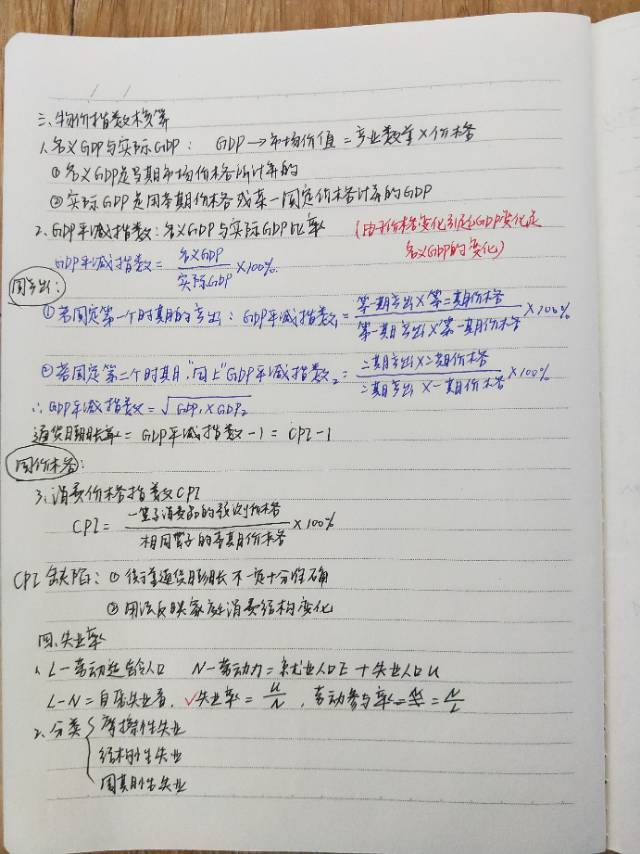 三、物价指数核算
1、名义GDP与实际GDP： GDP→市场价值=产业数量×价格
①名义GDP是当期市场价格所计算的
②实际GDP是用基期价格或某一固定价格计算的GDP
2、GDP平减指数：名义GDP与实际GDP比率 （由于价格变化引起GDP变化是
名义GDP的变化）
GDP平减指数= 名义GDP/实际GDP ×100%
同产出：
①若固定第一个时期的产出：GDP平减指数1= 第一期产出×第二期价格/第一期产出×第一期价格 ×100%
②若固定第二个时期，"同上"GDP平减指数2= 二期产出×二期价格/二期产出×一期价格 ×100%
∴GDP平减指数=√GDP1×GDP2
通货膨胀率=GDP平减指数-1=CPI-1
同价格：
3、消费价格指数CPI
CPI= 一篮子消费品的 价格/相同篮子的基期价格 ×100%
CPI缺陷：① 衡量通货膨胀不一定十分准确
②用法反映家庭消费结构变化
四、失业率
1、L-劳动适龄人口 N-劳动力=就业人口E+失业人口U
L-N=自愿失业者，√失业率= U/N ，劳动参与率= = N/L
2、分类{摩擦性失业
结构性失业
周期性失业